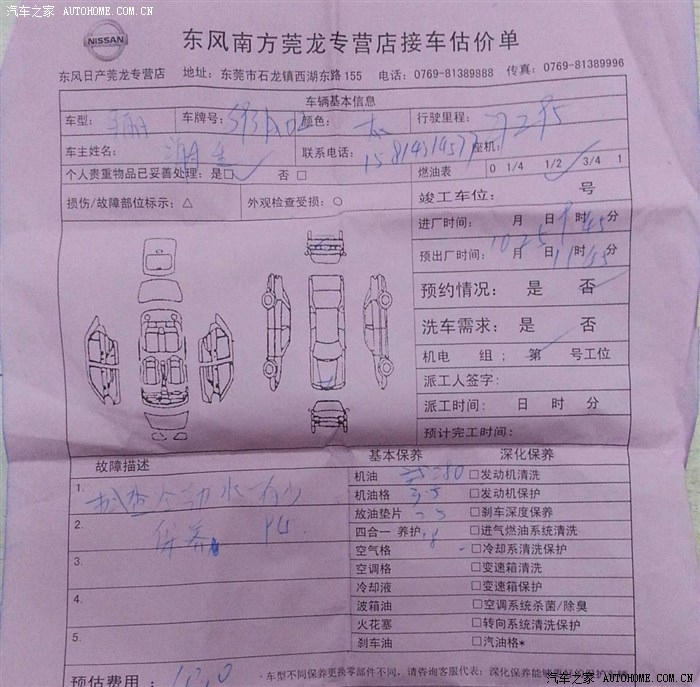 汽车之家 AUTOHOME.COM.CN
NISSAN
东风南方莞龙专营店接车估价单
东风日产莞龙专营店 地址：东莞市石龙镇西湖东路155 电话：0769-81389888 传真：0769-81389996
车辆基本信息
车型： 车牌号： 颜色： 行驶里程：
车主姓名： 联系电话： 座机：
个人贵重物品已妥善处理：是□ 否□ 燃油表 0 1/4 1/2 3/4 1
损伤/故障部位标示：△ 外观检查受损：○
竣工车位： 号
进厂时间： 月 日 时 45 分
预出厂时间： 10 月 25 日 11 时 分
预约情况： 是 否
洗车需求： 是 否
机电 组： 第 号工位
派工人签字：
派工时间： 日 时 分
预计完工时间：
故障描述 基本保养 深化保养
1. 机油 280 □发动机清洗
机油格 35 □发动机保护
2. 保养 放油垫片 □刹车深度保养
四合一 养护 □进气燃油系统清洗
3. 空气格 □冷却系清洗保护
空调格 □变速箱清洗
4. 冷却液 □变速箱保护
波箱油 □空调系统杀菌/除臭
5. 火花塞 □转向系统清洗保护
刹车油 □汽油格*
预估费用：
·车型不同保养更换零部件不同，请咨询客服代表；深化保养能够更好的保护车辆
汽车之家 AUTOHOME.COM.CN